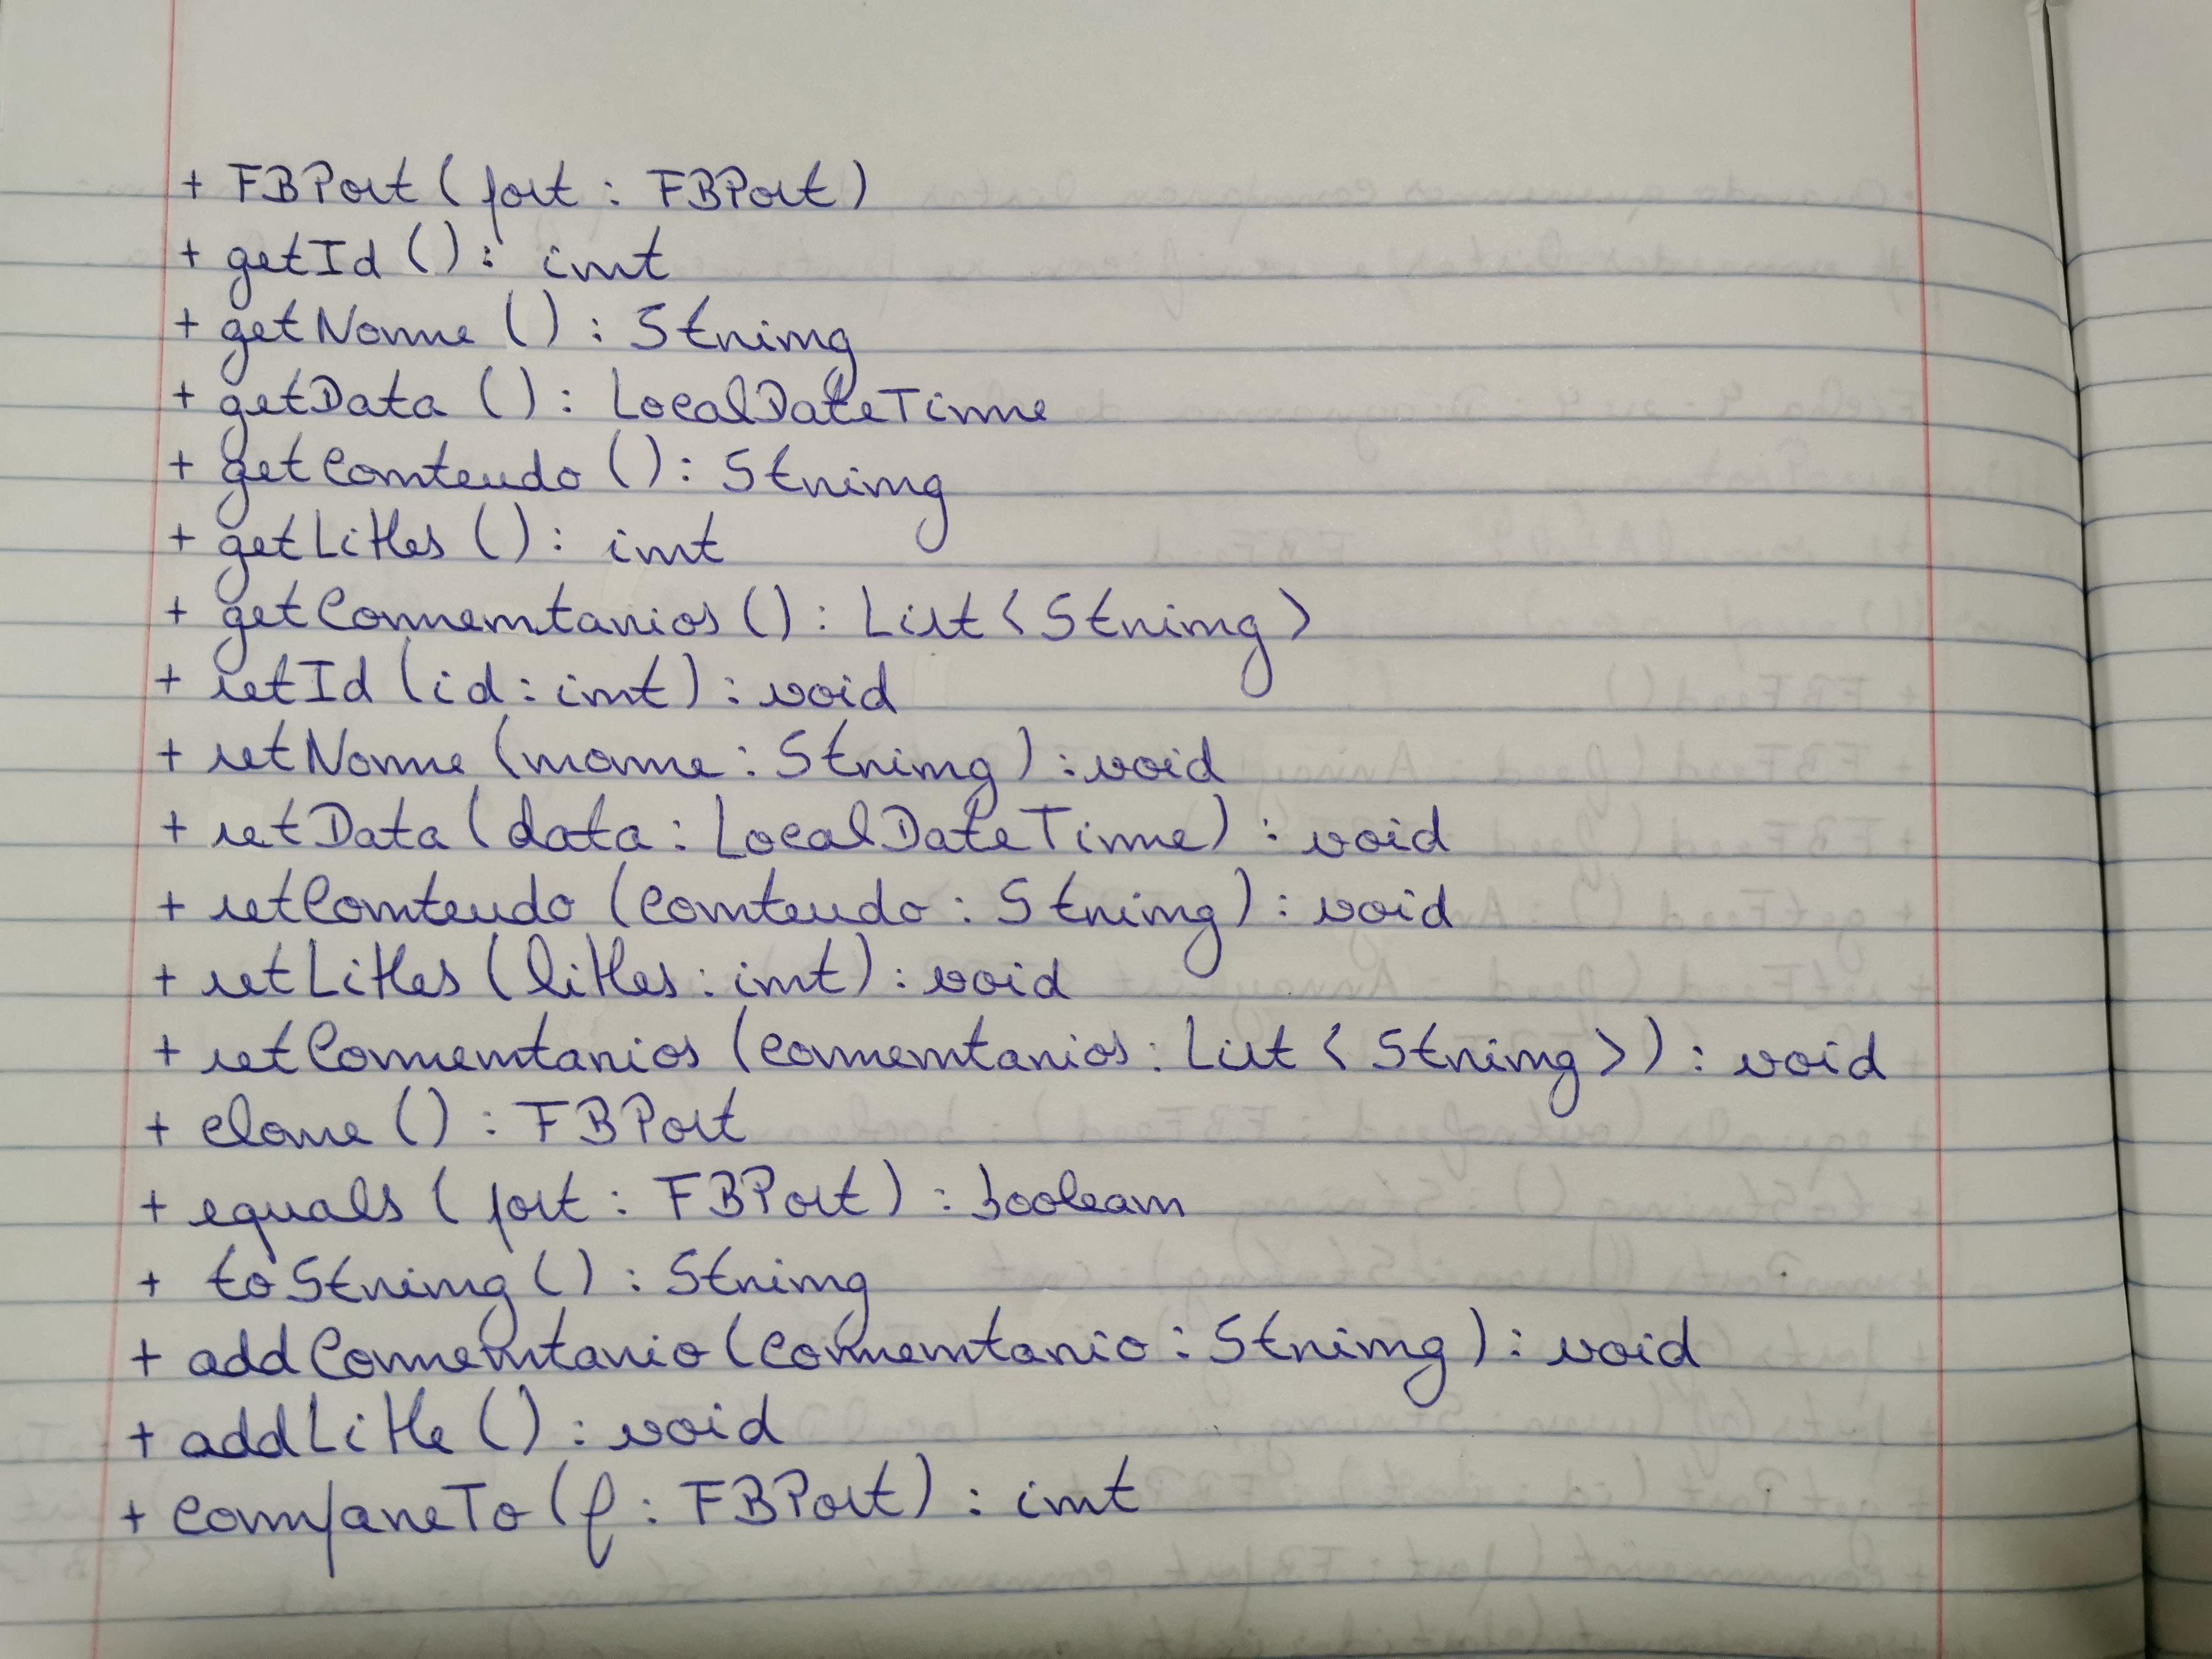 + FBPost(post : FBPost)
+ getId () : int
+ getNome () : String
+ getData () : LocalDateTime
+ getConteudo () : String
+ getLikes () : int
+ getComentarios () : List<String>
+ setId (id : int) : void
+ setNome (nome : String) : void
+ setData (data : LocalDateTime) : void
+ setConteudo (conteudo : String) : void
+ setLikes (likes : int) : void
+ setComentarios (comentarios : List<String>) : void
+ clone () : FBPost
+ equals (post : FBPost) : boolean
+ toString () : String
+ addComentario (comentario : String) : void
+ addLike () : void
+ compareTo (p : FBPost) : int